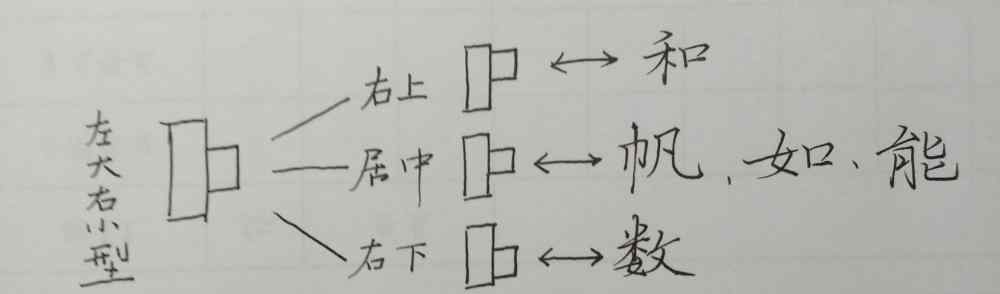 左大右小型
右上 ↔ 和
居中 ↔ 帆、如、能
右下 ↔ 数